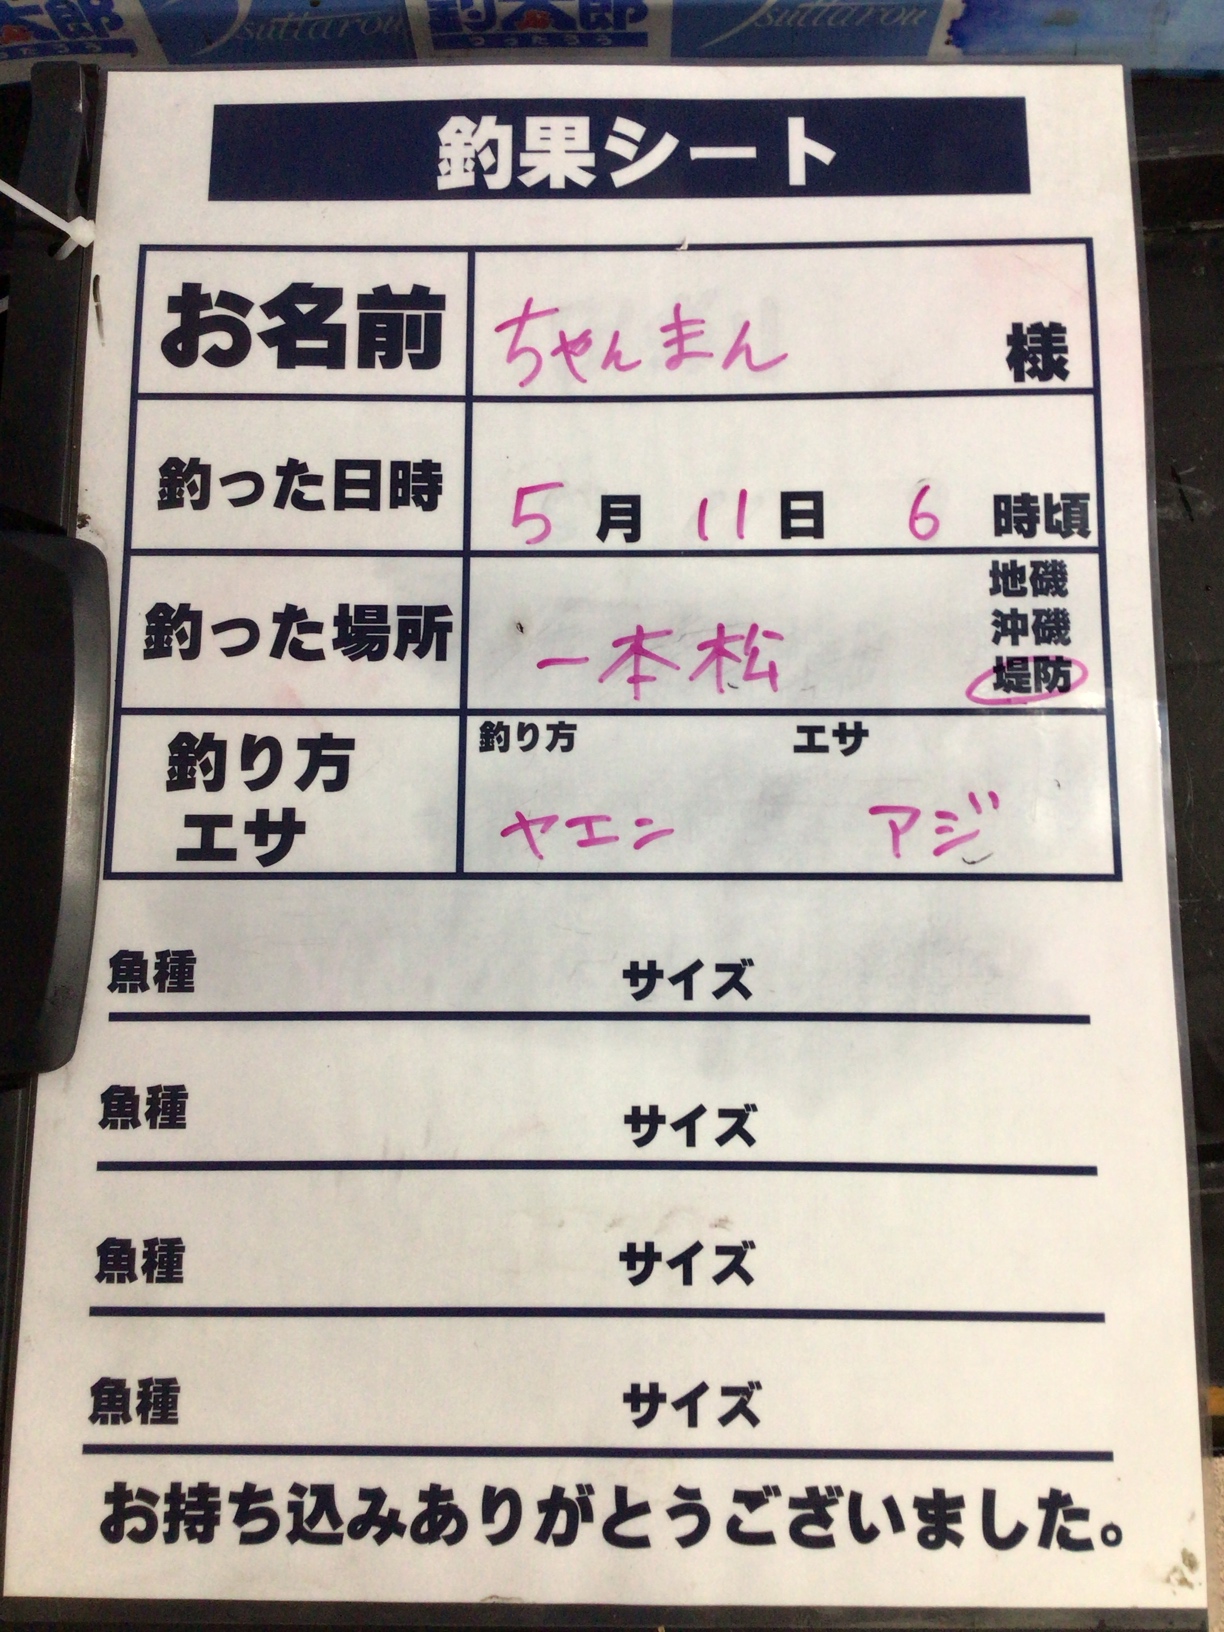 Tsuttarou
釣太郎
つったろう
Tsuttarou
釣果シート
お名前
ちゃんまん 様
釣った日時
5月11日 6時頃
釣った場所
一本松
地磯
沖磯
堤防
釣り方
エサ
釣り方 エサ
ヤエン アジ
魚種 サイズ
魚種 サイズ
魚種 サイズ
魚種 サイズ
お持ち込みありがとうございました。